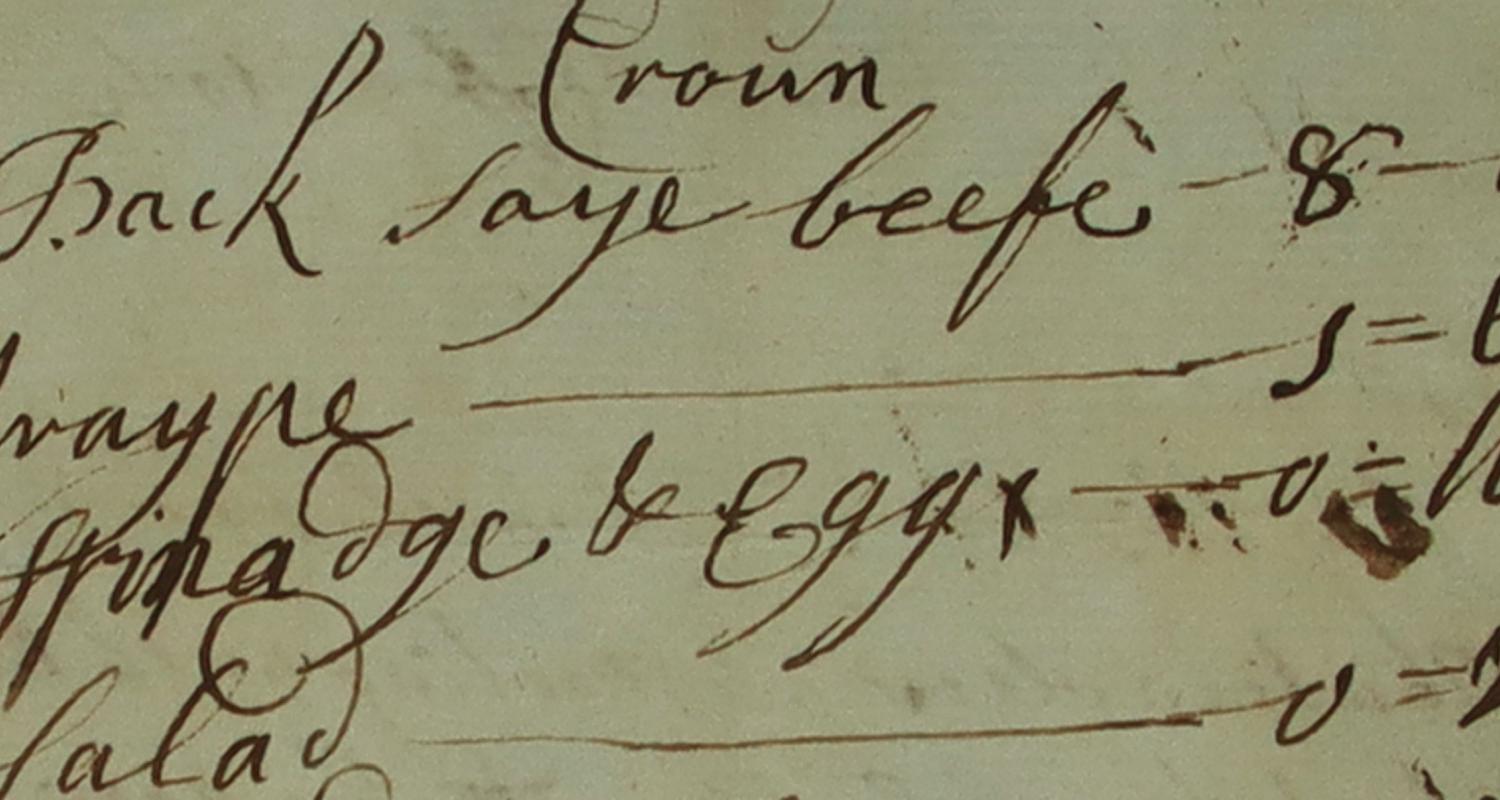 Croun
Back saye beefe - 8 -
traype - s =
spinadge & Eggs - 0 =
salad - 0 = 2